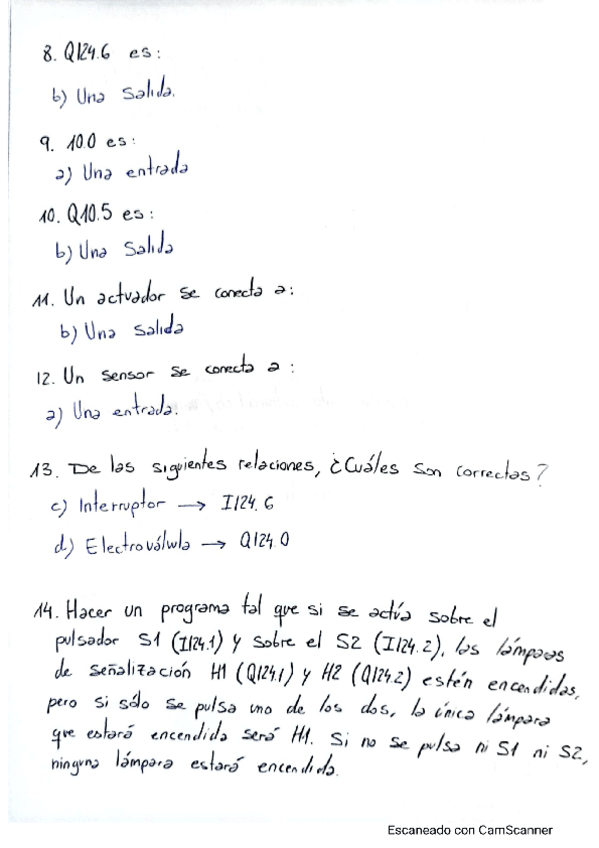 8. Q124.6 es:
b) Una Salida.
9. I0.0 es:
a) Una entrada
10. Q10.5 es:
b) Una Salida
11. Un actuador se conecta a:
b) Una Salida
12. Un sensor se conecta a:
a) Una entrada.
13. De las siguientes relaciones, ¿Cuáles son correctas?
c) Interruptor → I124.6
d) Electroválvula → Q124.0
14. Hacer un programa tal que si se actúa sobre el
pulsador S1 (I124.1) y sobre el S2 (I124.2), las lámparas
de señalización H1 (Q124.1) y H2 (Q124.2) estén encendidas,
pero si sólo se pulsa uno de los dos, la única lámpara
que estará encendida será H1. Si no se pulsa ni S1 ni S2,
ninguna lámpara estará encendida.
Escaneado con CamScanner